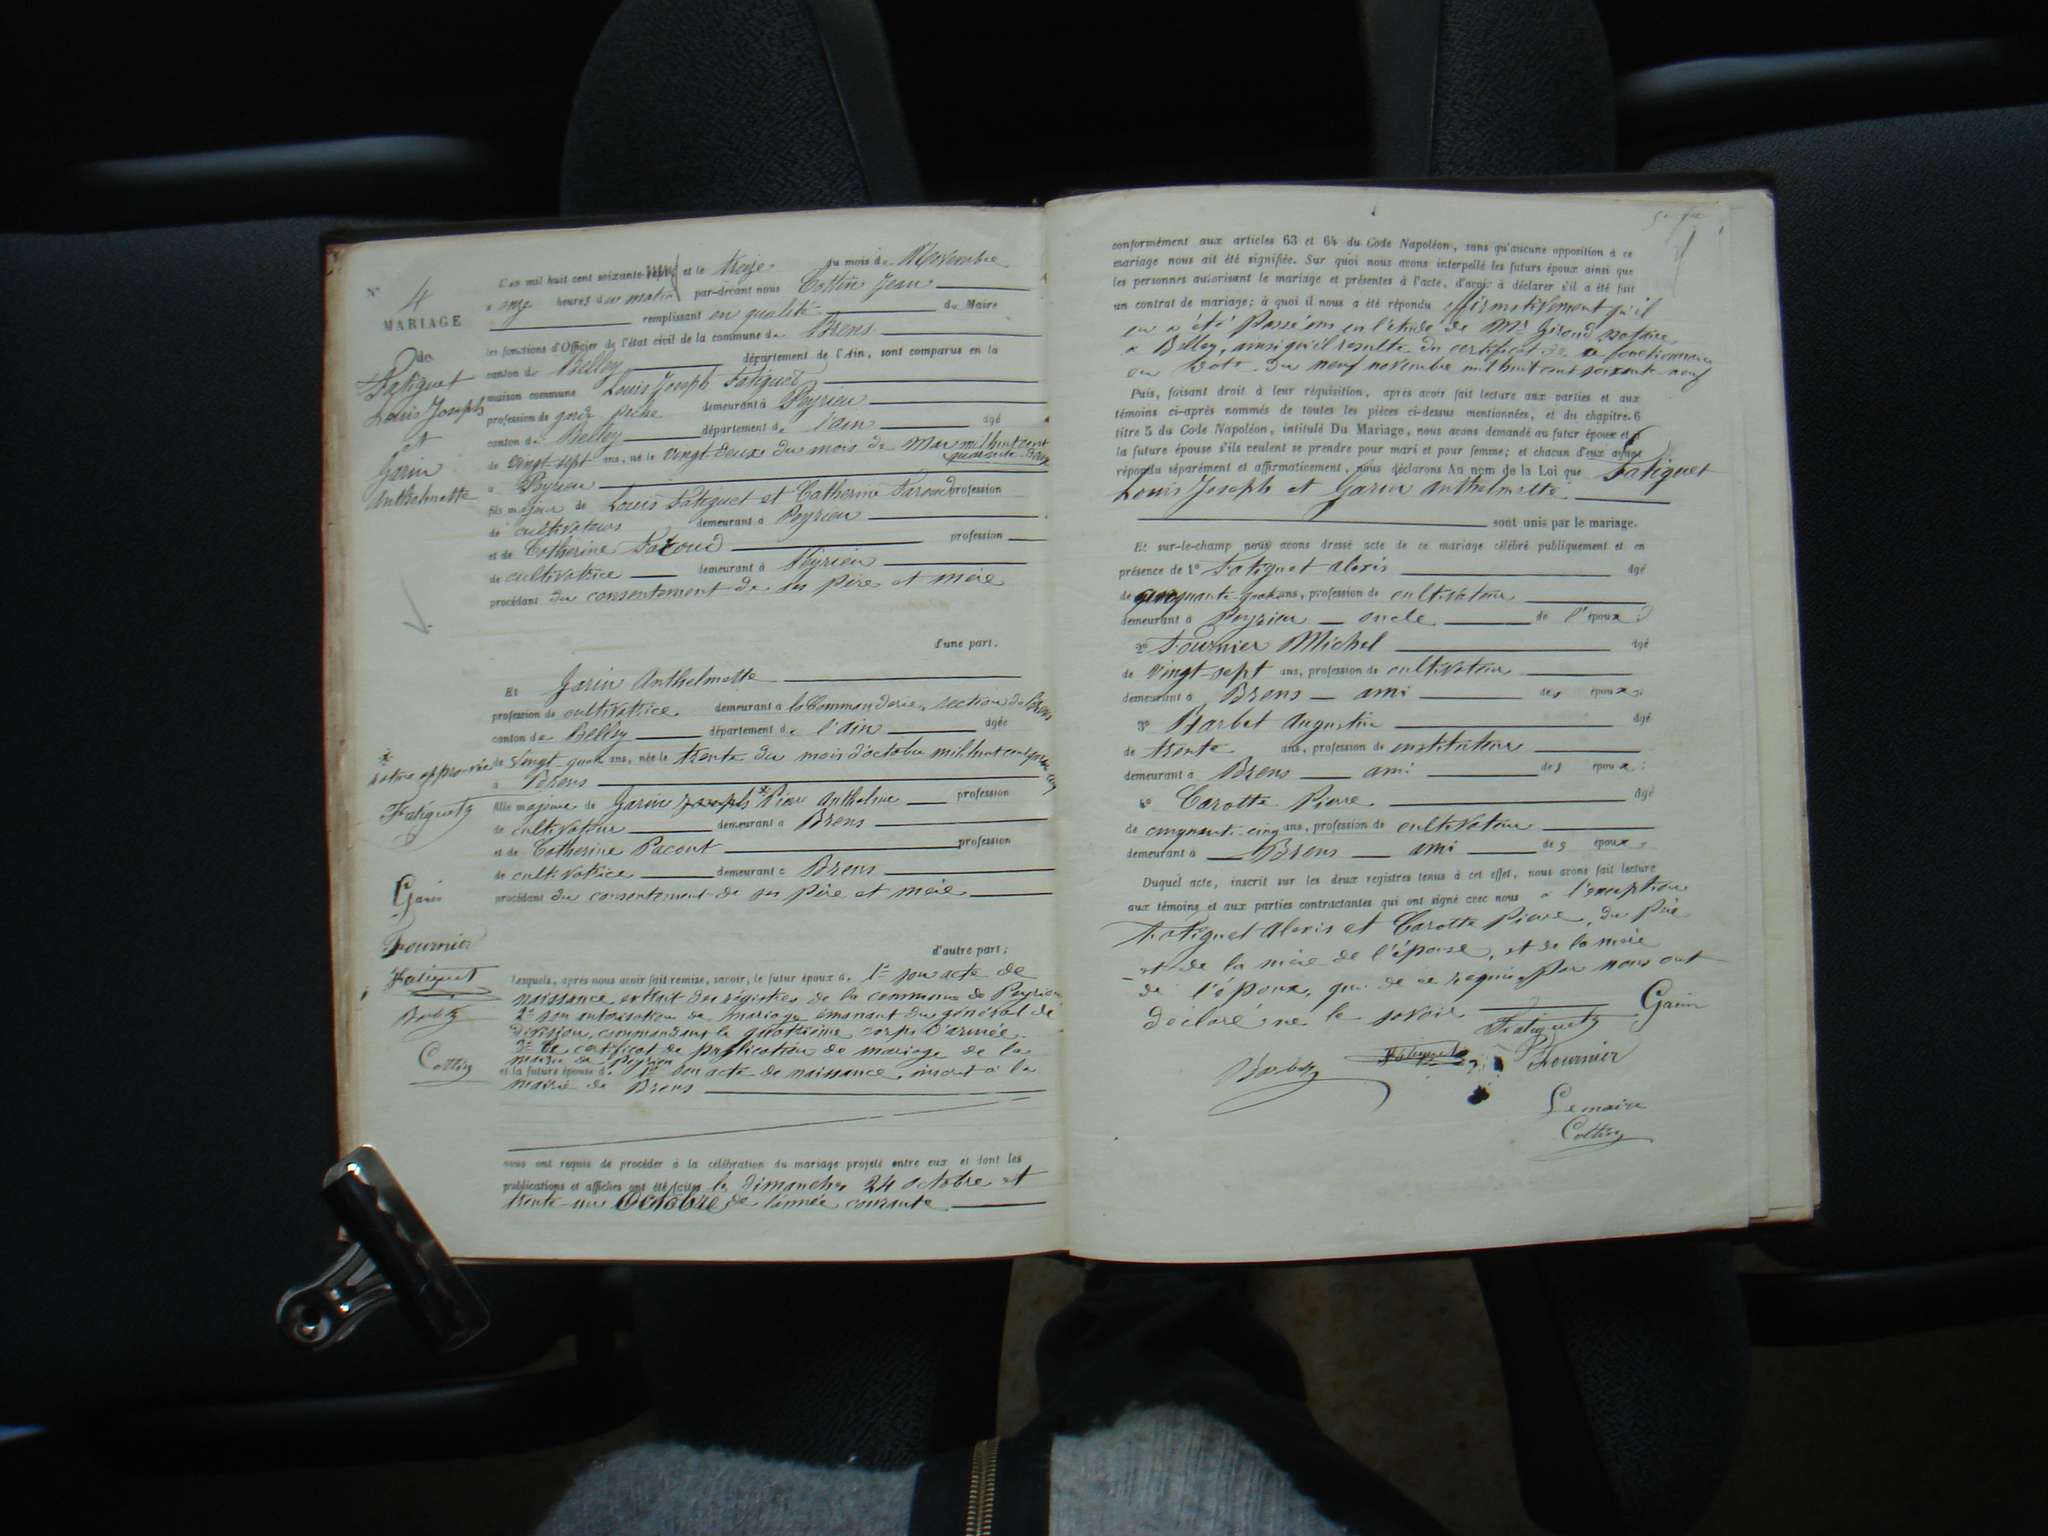 N° 4
MARIAGE
de
Fatiguet
Louis Joseph
et
Garin
Anthelmette
L'an mil huit cent soixante et le treize du mois de Novembre
à onze heures du matin par-devant nous Cottin Jean
remplissant en qualité du Maire
les fonctions d'Officier de l'état civil de la commune de Brens
canton de Belley département de l'Ain, sont comparus en la
maison commune Louis Joseph Fatiguet
profession de garde pêche demeurant à Peyrieu
canton de Belley département de l'ain âgé
de vingt-sept ans, né le vingt deux du mois de Mai mil huit cent
quarante deux
à Peyrieu
fils majeur de Louis Fatiguet et Catherine profession
de cultivateurs demeurant à Peyrieu
et de Catherine profession
de cultivatrice demeurant à Peyrieu
procédant du consentement de ses père et mère
d'une part.
Et Garin Anthelmette
profession de cultivatrice demeurant à la Commanderie, section de Brens
canton de Belley département de l'ain âgée
de vingt-quatre ans, née le trente du mois d'octobre mil huit cent
à Brens
fille majeure de Garin Joseph * Pierre Anthelme profession
de cultivateur demeurant à Brens
et de Catherine Pacout profession
de cultivatrice demeurant à Brens
procédant du consentement de ses père et mère
d'autre part;
* rature approuvée
Fatiguet
Garin
Fournier
Fatiguet
Barbet
Cottin
Lesquels, après nous avoir fait remise, savoir, le futur époux d. 1° son acte de
naissance extrait des régistres de la commune de Peyrieu
2° son autorisation de mariage émanant du général de
division, commandant le quatrième corps d'armée.
3° Le certificat de publication de mariage de la
mairie de Peyrieu
et la future épouse d 1° son acte de naissance inscrit à la
mairie de Brens
nous ont requis de procéder à la célébration du mariage projeté entre eux et dont les
publications et affiches ont été faites les dimanches 24 octobre et
trente-un Octobre de l'année courante
conformément aux articles 63 et 64 du Code Napoléon, sans qu'aucune opposition à ce
mariage nous ait été signifiée. Sur quoi nous avons interpellé les futurs époux ainsi que
les personnes autorisant le mariage et présentes à l'acte, d'avoir à déclarer s'il a été fait
un contrat de mariage; à quoi il nous a été répondu affirmativement qu'il
en a été passé un en l'étude de Mr Giroud notaire
à Belley, ainsi qu'il résulte du certificat de ce fonctionnaire
en date du neuf novembre mil huit cent soixante neuf
Puis, faisant droit à leur réquisition, après avoir fait lecture aux parties et aux
témoins ci-après nommés de toutes les pièces ci-dessus mentionnées, et du chapitre 6
titre 5 du Code Napoléon, intitulé Du Mariage, nous avons demandé au futur époux et à
la future épouse s'ils veulent se prendre pour mari et pour femme; et chacun d'eux ayant
répondu séparément et affirmativement, nous déclarons Au nom de la Loi que Fatiguet
Louis Joseph et Garin Anthelmette
sont unis par le mariage.
Et sur-le-champ nous avons dressé acte de ce mariage célébré publiquement et en
présence de 1° Fatiguet Alexis âgé
de ans, profession de cultivateur
demeurant à Peyrieu oncle de l'époux;
2° Fournier Michel âgé
de vingt-sept ans, profession de cultivateur
demeurant à Brens ami des époux;
3° Barbet Augustin âgé
de trente ans, profession de instituteur
demeurant à Brens ami des époux;
4° Carotte Pierre âgé
de cinquante-cinq ans, profession de cultivateur
demeurant à Brens ami des époux.
Duquel acte, inscrit sur les deux registres tenus à cet effet, nous avons fait lecture
aux témoins et aux parties contractantes qui ont signé avec nous à l'exception
Fatiguet Alexis et Carotte Pierre, du père
et de la mère de l'épouse, et de la mère
de l'époux, qui de ce requis par nous ont
déclaré ne le savoir
Garin
Fatiguet
Barbet
Fatiguet
Fournier
Le maire
Cottin